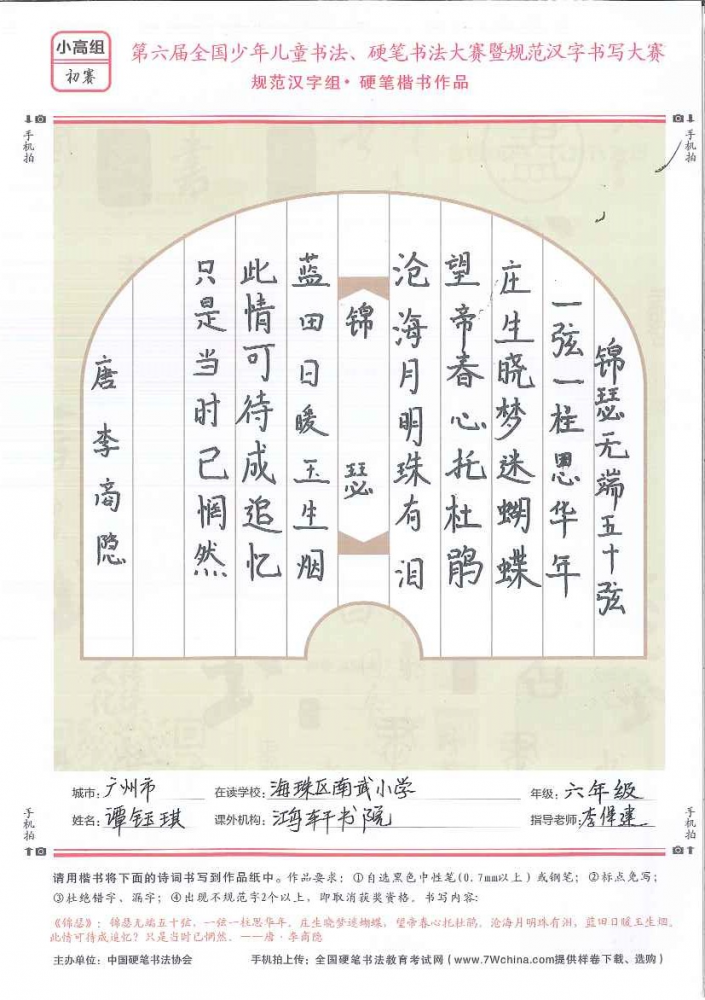 小高组
初赛
第六届全国少年儿童书法、硬笔书法大赛暨规范汉字书写大赛
规范汉字组·硬笔楷书作品
手机拍
手机拍
锦瑟无端五十弦
一弦一柱思华年
庄生晓梦迷蝴蝶
望帝春心托杜鹃
沧海月明珠有泪
锦瑟
蓝田日暖玉生烟
此情可待成追忆
只是当时已惘然
唐李商隐
城市:广州市 在读学校:海珠区南武小学 年级:六年级
姓名:谭钰琪 课外机构:鸿轩书院 指导老师:李伟建
手机拍
手机拍
请用楷书将下面的诗词书写到作品纸中。作品要求:①自选黑色中性笔(0.7mm以上)或钢笔;②标点免写;
③杜绝错字、漏字;④出现不规范字2个以上,即取消获奖资格。书写内容:
《锦瑟》:锦瑟无端五十弦,一弦一柱思华年。庄生晓梦迷蝴蝶,望帝春心托杜鹃。沧海月明珠有泪,蓝田日暖玉生烟。
此情可待成追忆?只是当时已惘然。——唐·李商隐
主办单位:中国硬笔书法协会 手机拍上传:全国硬笔书法教育考试网(www.7Wchina.com提供样卷下载、选购)